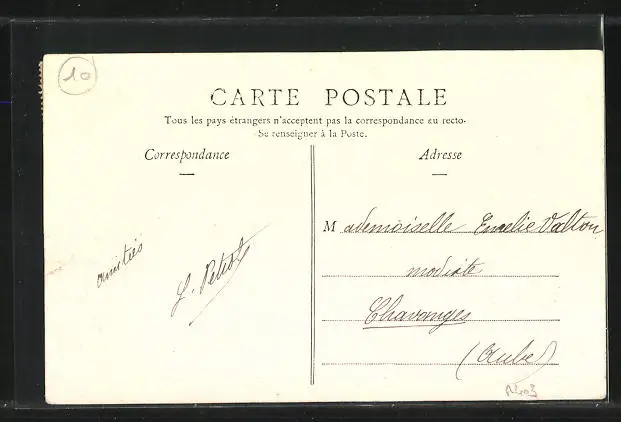 10
CARTE POSTALE
Tous les pays étrangers n'acceptent pas la correspondance au recto.
Se renseigner à la Poste.
Correspondance
Adresse
Mademoiselle Emelie Valton
modiste
Chavanges
(Aube)
amitiés